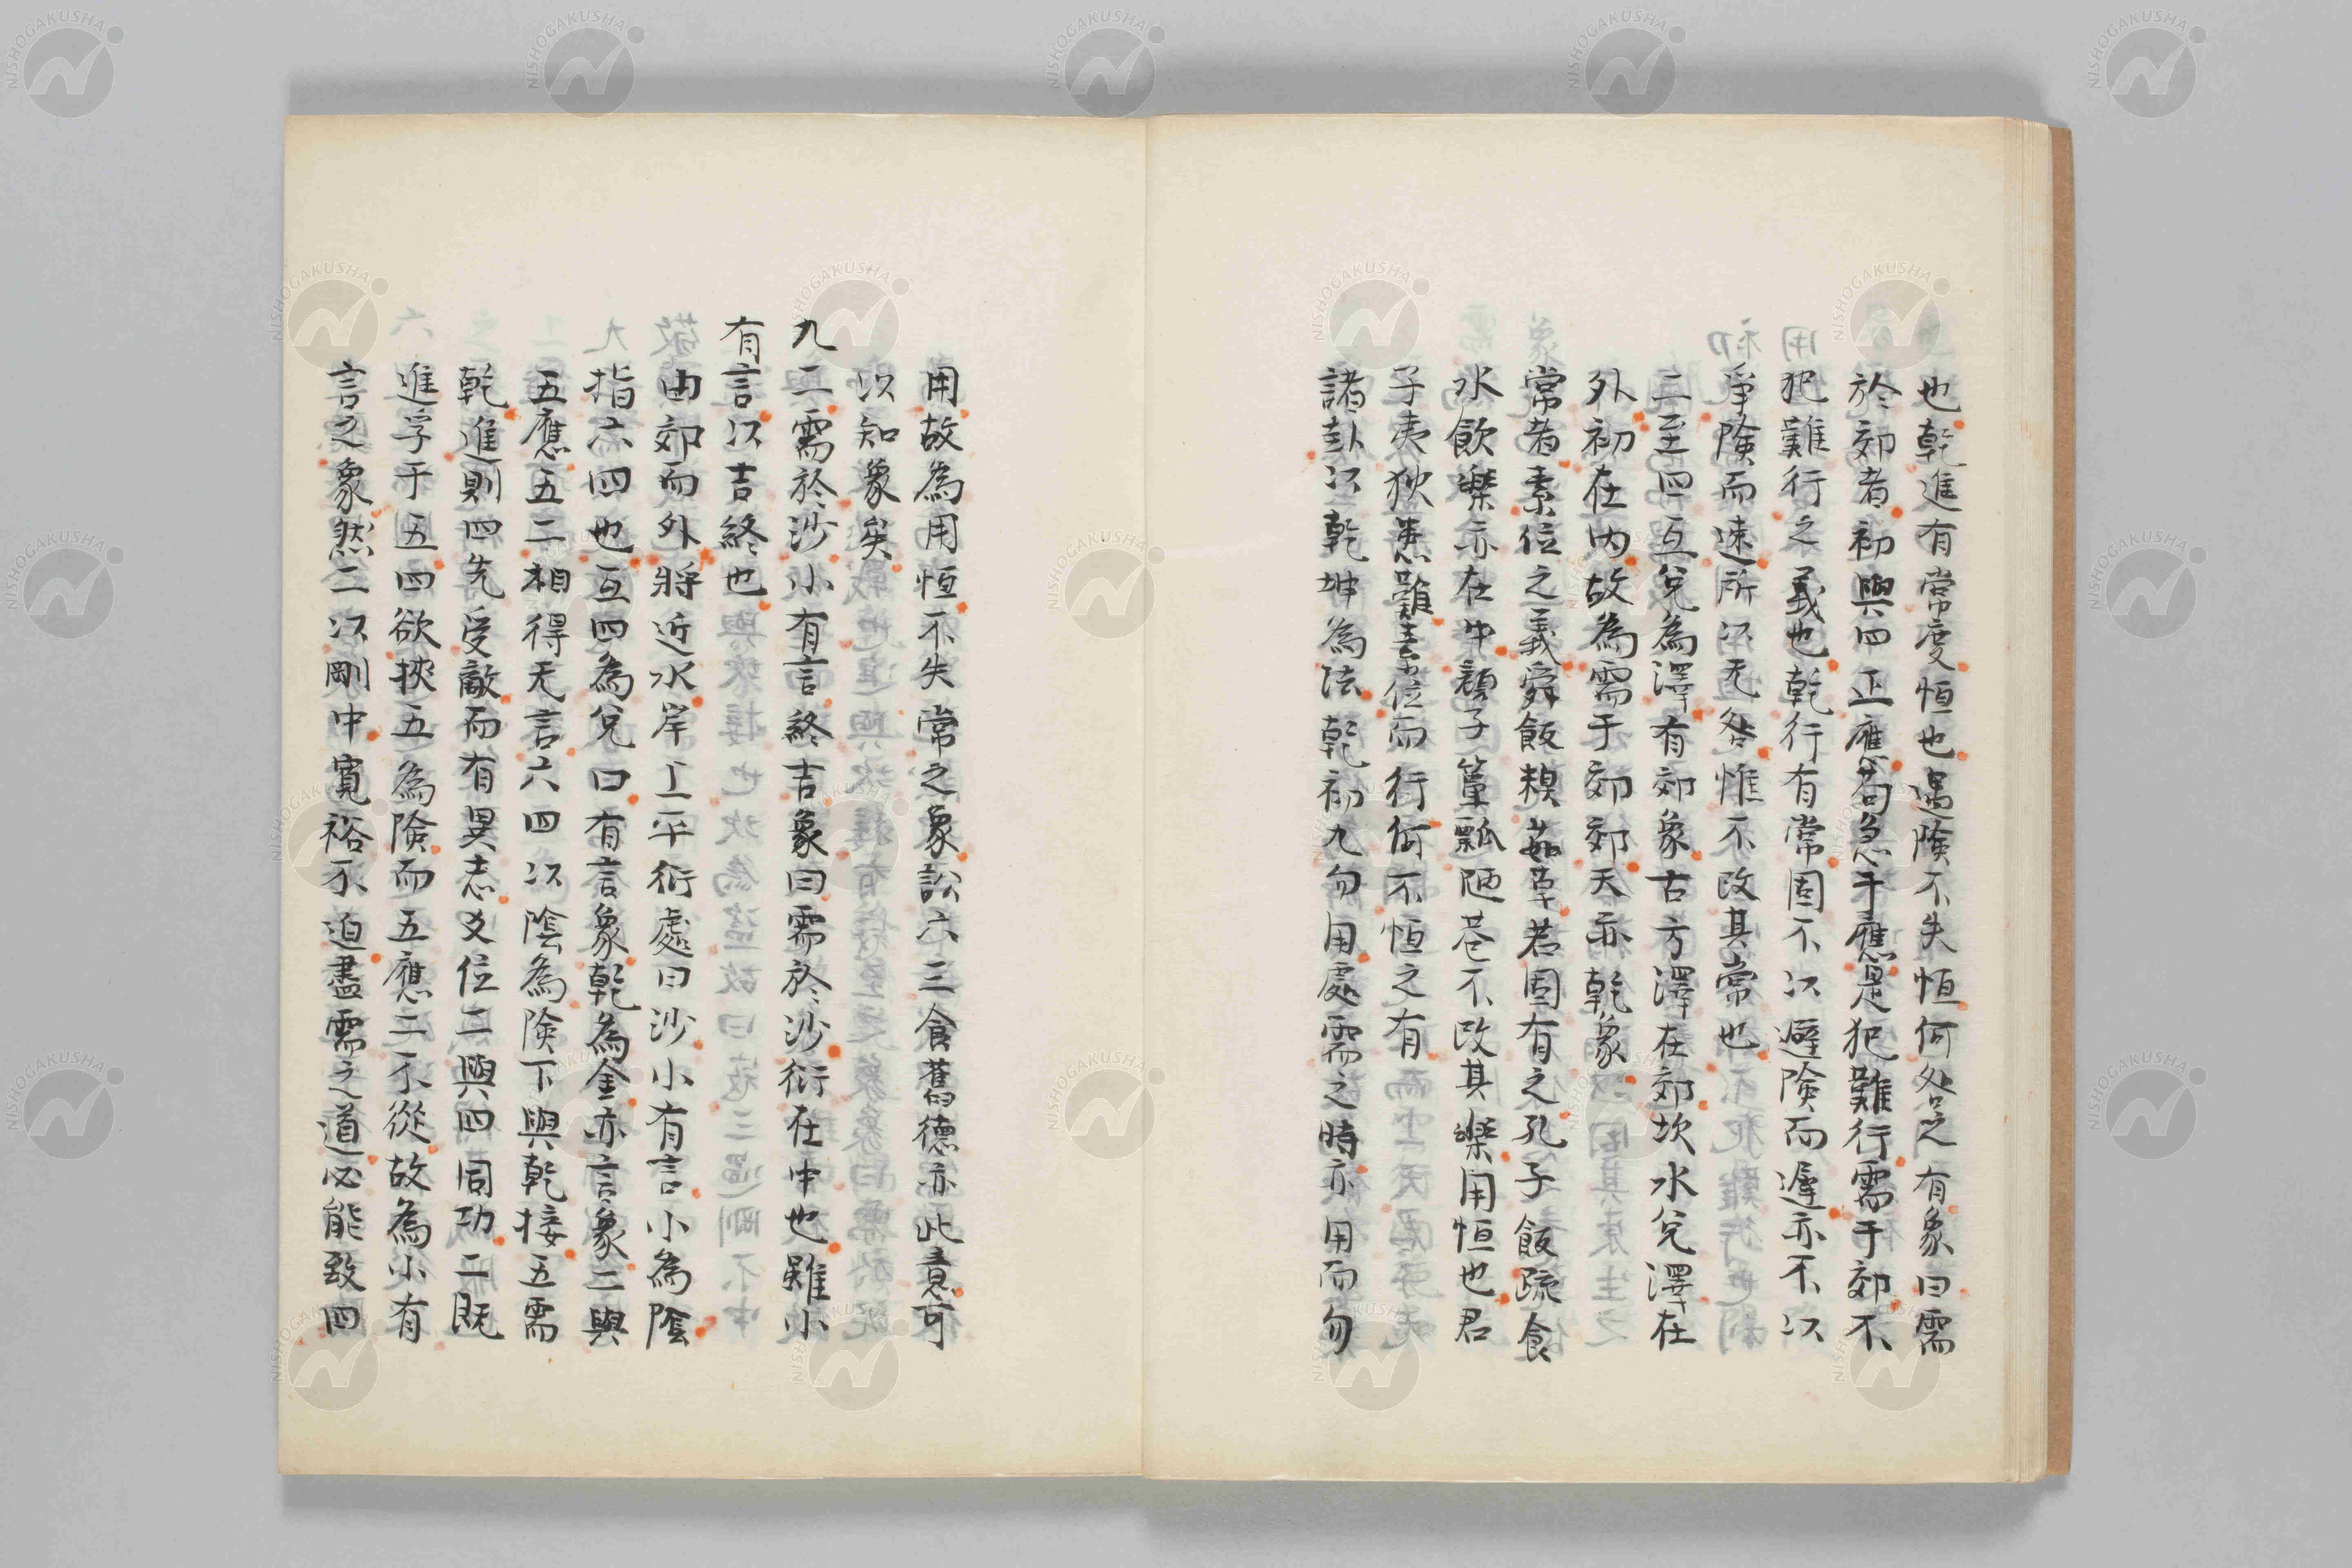 也乾進有常度恒也遇険不失恒何咎之有象曰需
於郊者初與四正應苟急于應是犯難行需于郊不
犯難行之義也乾行有常固不以避険而遲亦不以
爭険而速所以无咎惟不改其常也
二至四互兌為澤有郊象古方澤在郊坎水兌澤在
外初在内故為需于郊郊天亦乾象
常者素位之義舜飯糗茹草若固有之孔子飯疏食
水飲樂亦在中顏子簞瓢陋巷不改其樂用恒也君
子夷狄患難素位而行何不恒之有
諸卦以乾坤為法乾初九勿用處需之時亦用而勿
用故為用恒不失常之象訟六三食舊德亦此意可
以知象矣
九二需於沙小有言終吉象曰需於沙衍在中也雖小
有言以吉終也
由郊而外將近水岸上平衍處曰沙小有言小為陰
指六四也互四為兌口有言象乾為金亦言象二與
五應五二相得无言六四以陰為険下與乾接五需
乾進則四先受敵而有異志爻位二與四同功二既
進孚于五四欲挾五為険而五應二不從故為小有
言之象然二以剛中寬裕不迫盡需之道必能致四
NISHOGAKUSHA